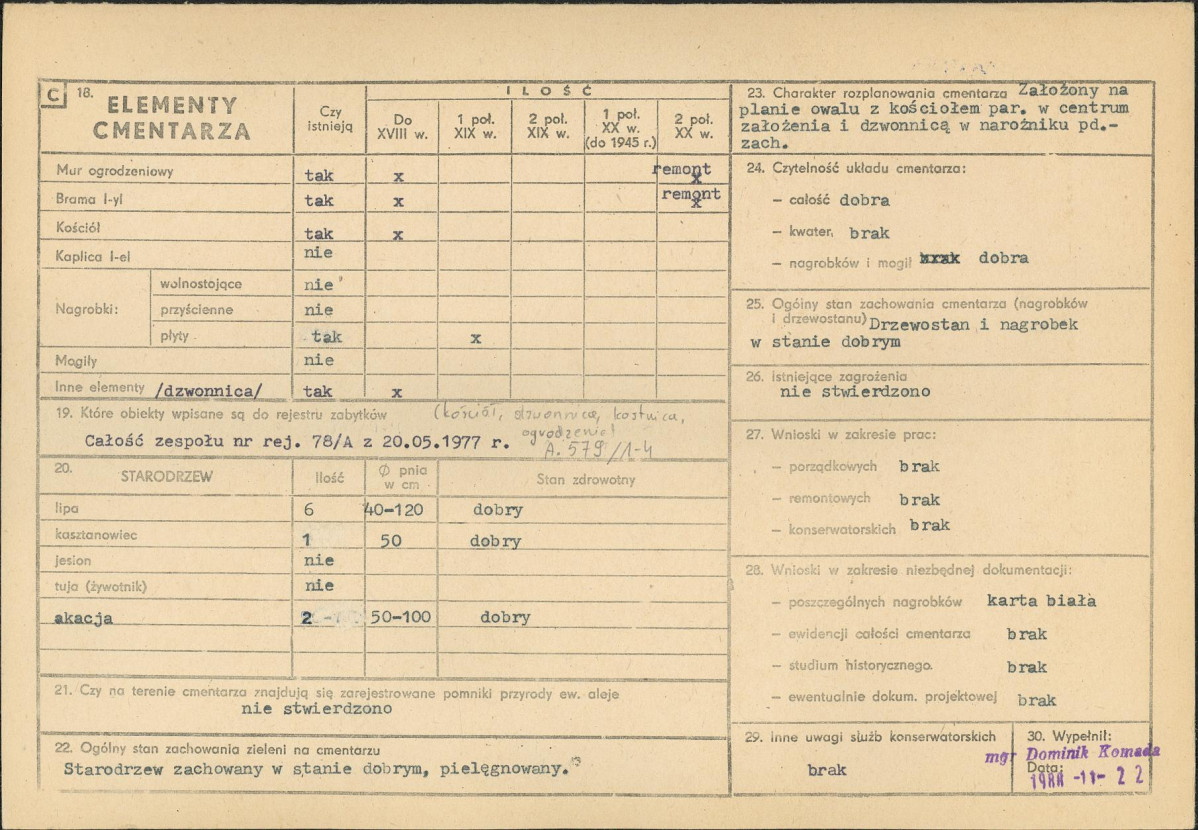 C 18. ELEMENTY CMENTARZA
Czy istnieją
ILOŚĆ
Do XVIII w.
1 poł. XIX w.
2 poł. XIX w.
1 poł. XX w. (do 1945 r.)
2 poł. XX w.
Mur ogrodzeniowy tak x remont x
Brama I-yl tak x remont x
Kościół tak x
Kaplica I-el nie
Nagrobki:
wolnostojące nie
przyścienne nie
płyty tak x
Mogiły nie
Inne elementy /dzwonnica/ tak x
19. Które obiekty wpisane są do rejestru zabytków (kościół, dzwonnica, kostnica,
ogrodzenie)
Całość zespołu nr rej. 78/A z 20.05.1977 r. A.579/1-4
20. STARODRZEW Ilość Ø pnia w cm Stan zdrowotny
lipa 6 40-120 dobry
kasztanowiec 1 50 dobry
jesion nie
tuja (żywotnik) nie
akacja 2 50-100 dobry
21. Czy na terenie cmentarza znajdują się zarejestrowane pomniki przyrody ew. aleje
nie stwierdzono
22. Ogólny stan zachowania zieleni na cmentarzu
Starodrzew zachowany w stanie dobrym, pielęgnowany.
23. Charakter rozplanowania cmentarza Założony na
planie owalu z kościołem par. w centrum
założenia i dzwonnicą w narożniku pd.-
zach.
24. Czytelność układu cmentarza:
– całość dobra
– kwater, brak
– nagrobków i mogił dobra
25. Ogólny stan zachowania cmentarza (nagrobków
i drzewostanu) Drzewostan i nagrobek
w stanie dobrym
26. Istniejące zagrożenia
nie stwierdzono
27. Wnioski w zakresie prac:
– porządkowych brak
– remontowych brak
– konserwatorskich brak
28. Wnioski w zakresie niezbędnej dokumentacji:
– poszczególnych nagrobków karta biała
– ewidencji całości cmentarza brak
– studium historycznego. brak
– ewentualnie dokum. projektowej brak
29. Inne uwagi służb konserwatorskich
brak
30. Wypełnił:
mgr Dominik Komada
Data:
1988 -11- 22